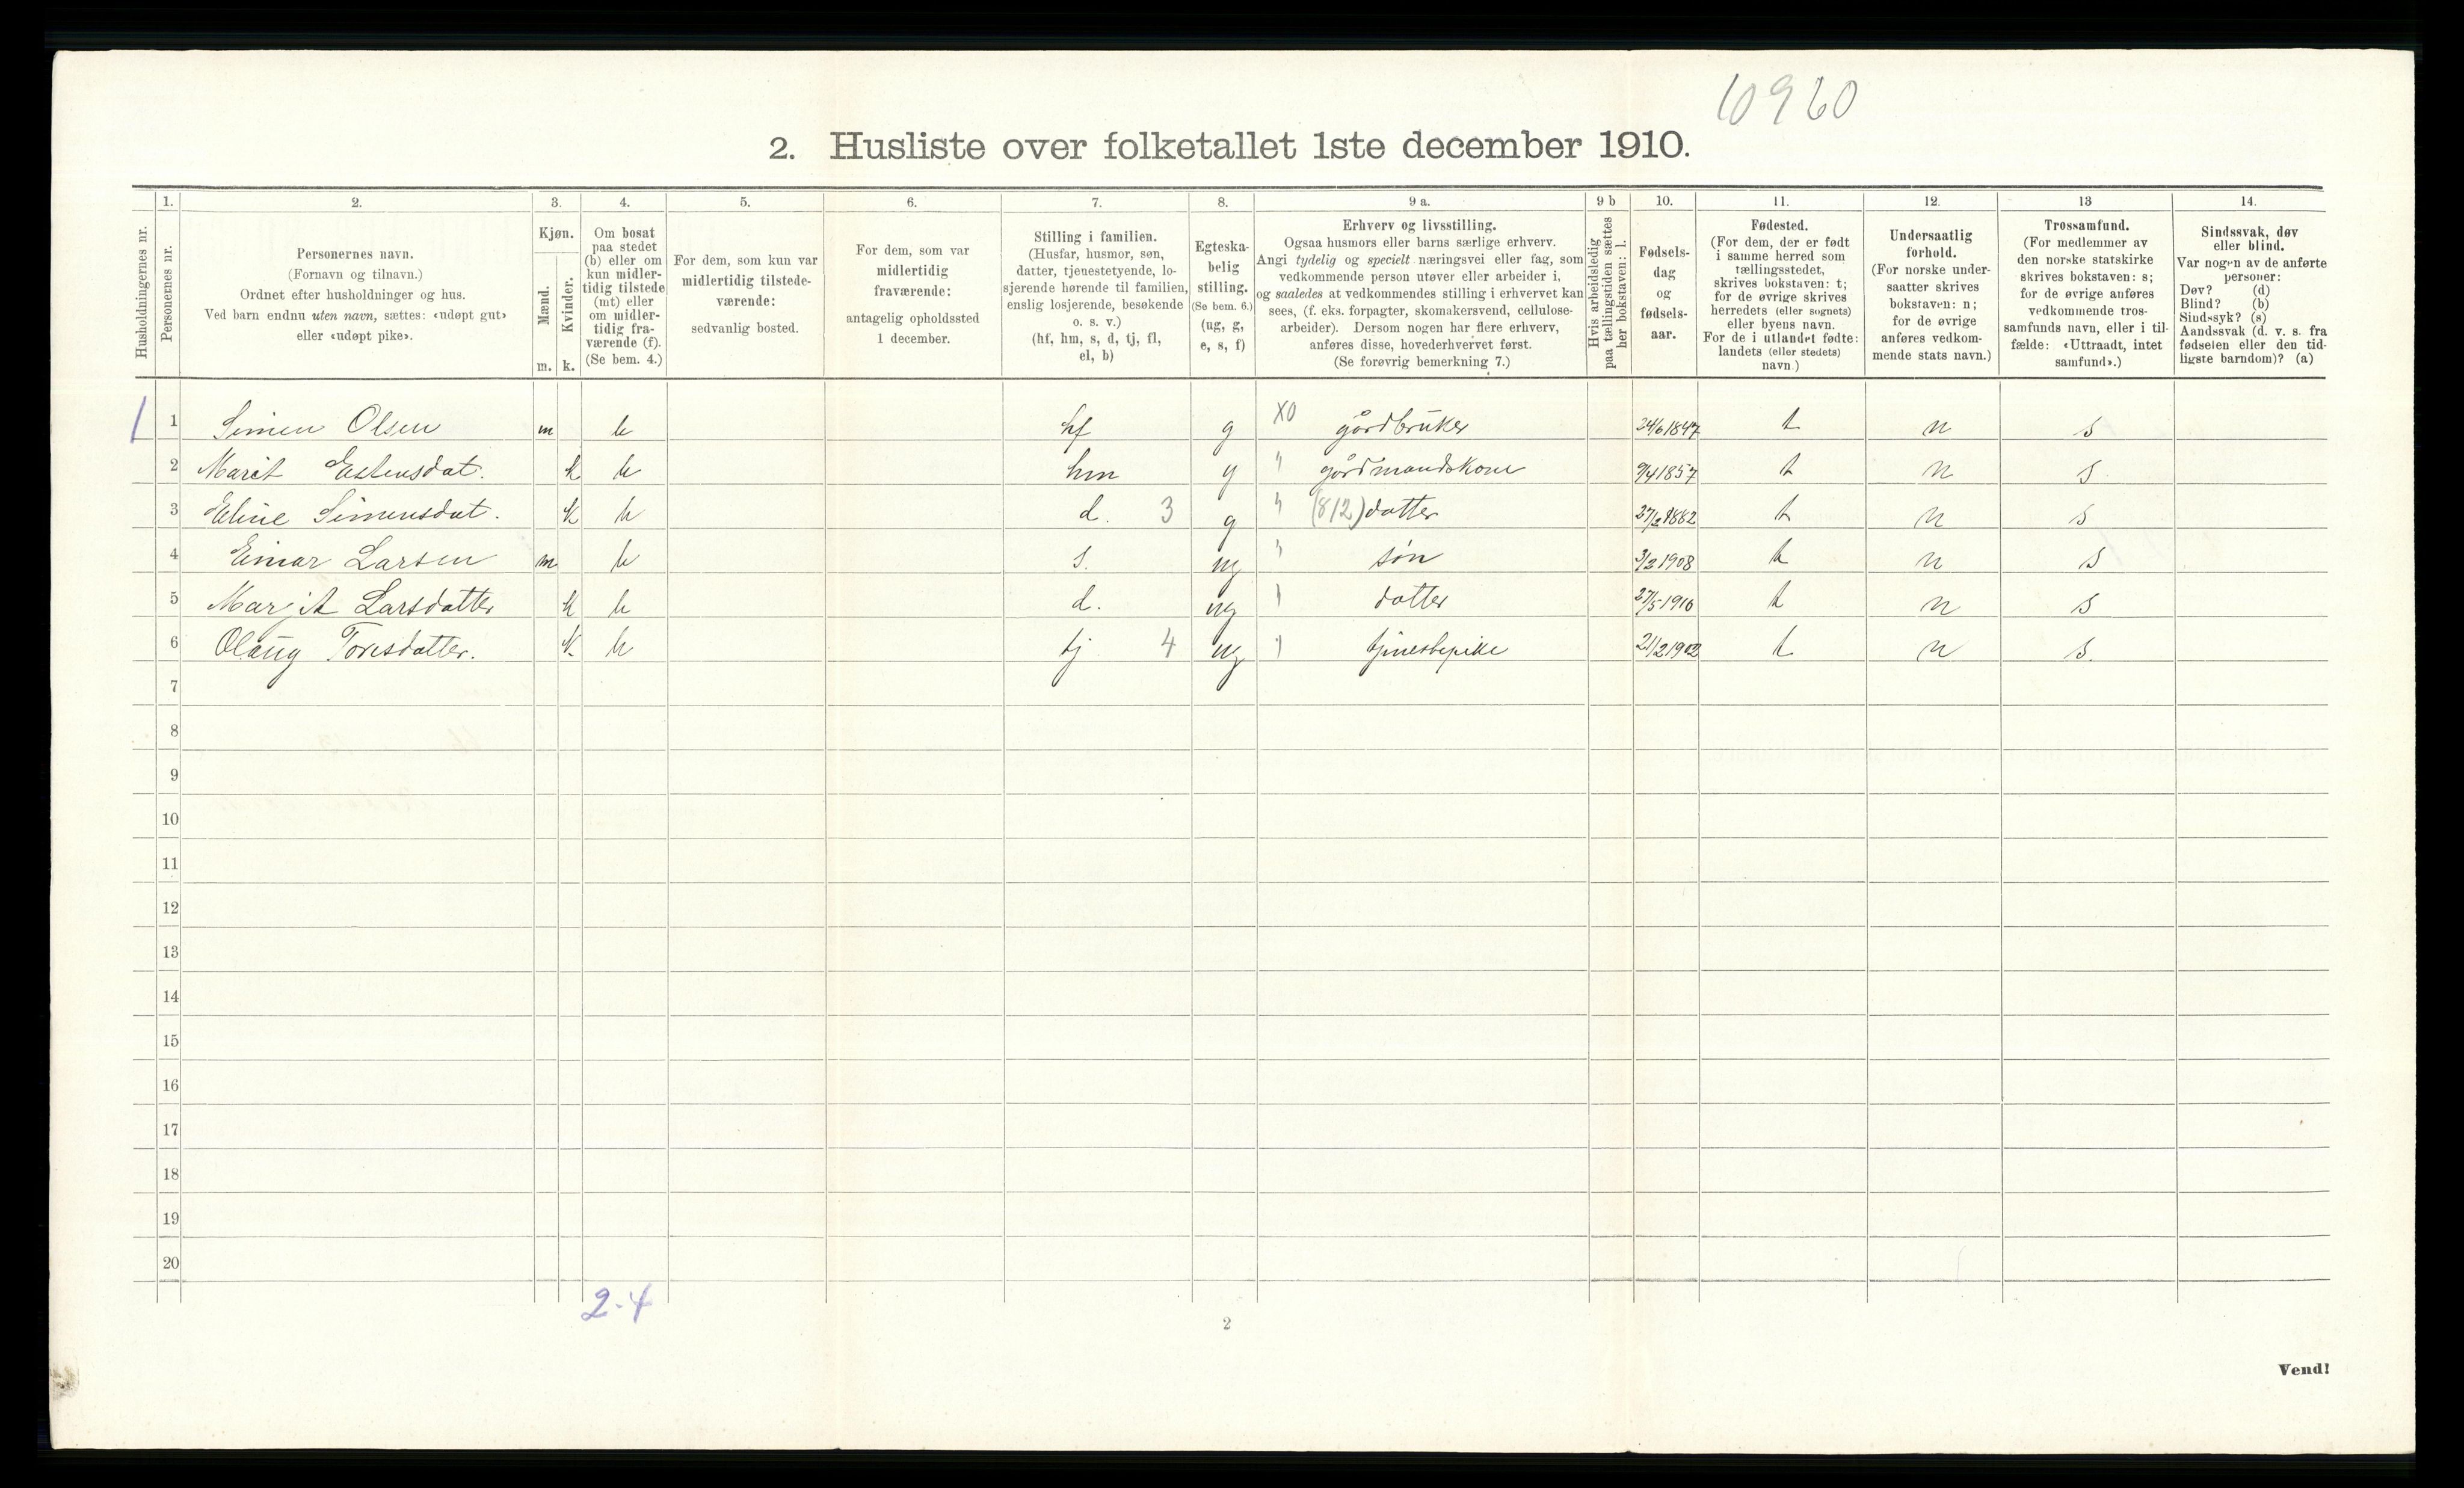 10960
2. Husliste over folketallet 1ste december 1910.
1. 2. 3. 4. 5. 6. 7. 8. 9 a. 9 b 10. 11. 12. 13 14.
Husholdningernes nr.
Personernes nr.
Personernes navn.
(Fornavn og tilnavn.)
Ordnet efter husholdninger og hus.
Ved barn endnu uten navn, sættes: «udøpt gut»
eller «udøpt pike».
Kjøn.
Mænd.
Kvinder.
m. k.
Om bosat
paa stedet
(b) eller om
kun midler-
tidig tilstede
(mt) eller
om midler-
tidig fra-
værende (f).
(Se bem. 4.)
For dem, som kun var
midlertidig tilstede-
værende:
sedvanlig bosted.
For dem, som var
midlertidig
fraværende:
antagelig opholdssted
1 december.
Stilling i familien.
(Husfar, husmor, søn,
datter, tjenestetyende, lo-
sjerende hørende til familien,
enslig losjerende, besøkende
o. s. v.)
(hf, hm, s, d, tj, fl,
el, b)
Egteska-
belig
stilling.
(Se bem. 6.)
(ug, g,
e, s, f)
Erhverv og livsstilling.
Ogsaa husmors eller barns særlige erhverv.
Angi tydelig og specielt næringsvei eller fag, som
vedkommende person utøver eller arbeider i,
og saaledes at vedkommendes stilling i erhvervet kan
sees, (f. eks. forpagter, skomakersvend, cellulose-
arbeider). Dersom nogen har flere erhverv,
anføres disse, hovederhvervet først.
(Se forøvrig bemerkning 7.)
Hvis arbeidsledig
paa tællingstiden sættes
her bokstaven: l.
Fødsels-
dag
og
fødsels-
aar.
Fødested.
(For dem, der er født
i samme herred som
tællingsstedet,
skrives bokstaven: t;
for de øvrige skrives
herredets (eller sognets)
eller byens navn.
For de i utlandet fødte:
landets (eller stedets)
navn.)
Undersaatlig
forhold.
(For norske under-
saatter skrives
bokstaven: n;
for de øvrige
anføres vedkom-
mende stats navn.)
Trossamfund.
(For medlemmer av
den norske statskirke
skrives bokstaven: s;
for de øvrige anføres
vedkommende tros-
samfunds navn, eller i til-
fælde: «Uttraadt, intet
samfund».)
Sindssvak, døv
eller blind.
Var nogen av de anførte
personer:
Døv? (d)
Blind? (b)
Sindssyk? (s)
Aandssvak (d. v. s. fra
fødselen eller den tid-
ligste barndom)? (a)
1 1 Simen Olsen m b hf g XO gårdbruker 24/6 1847 t n s
2 Marit Estensdat. k b hm g " gårdmandskone 9/4 1857 t n s
3 Eline Simensdat. k b d. 3 g " (812) datter 27/2 1882 t n s
4 Einar Larsen m b s. ug " søn 3/2 1908 t n s
5 Marjit Larsdatter k b d. ug " datter 27/5 1910 t n s
6 Olaug Toresdatter. k b tj 4 ug " tjenestepike 21/2 1902 t n s.
7
8
9
10
11
12
13
14
15
16
17
18
19
20
2-4
2
Vend!